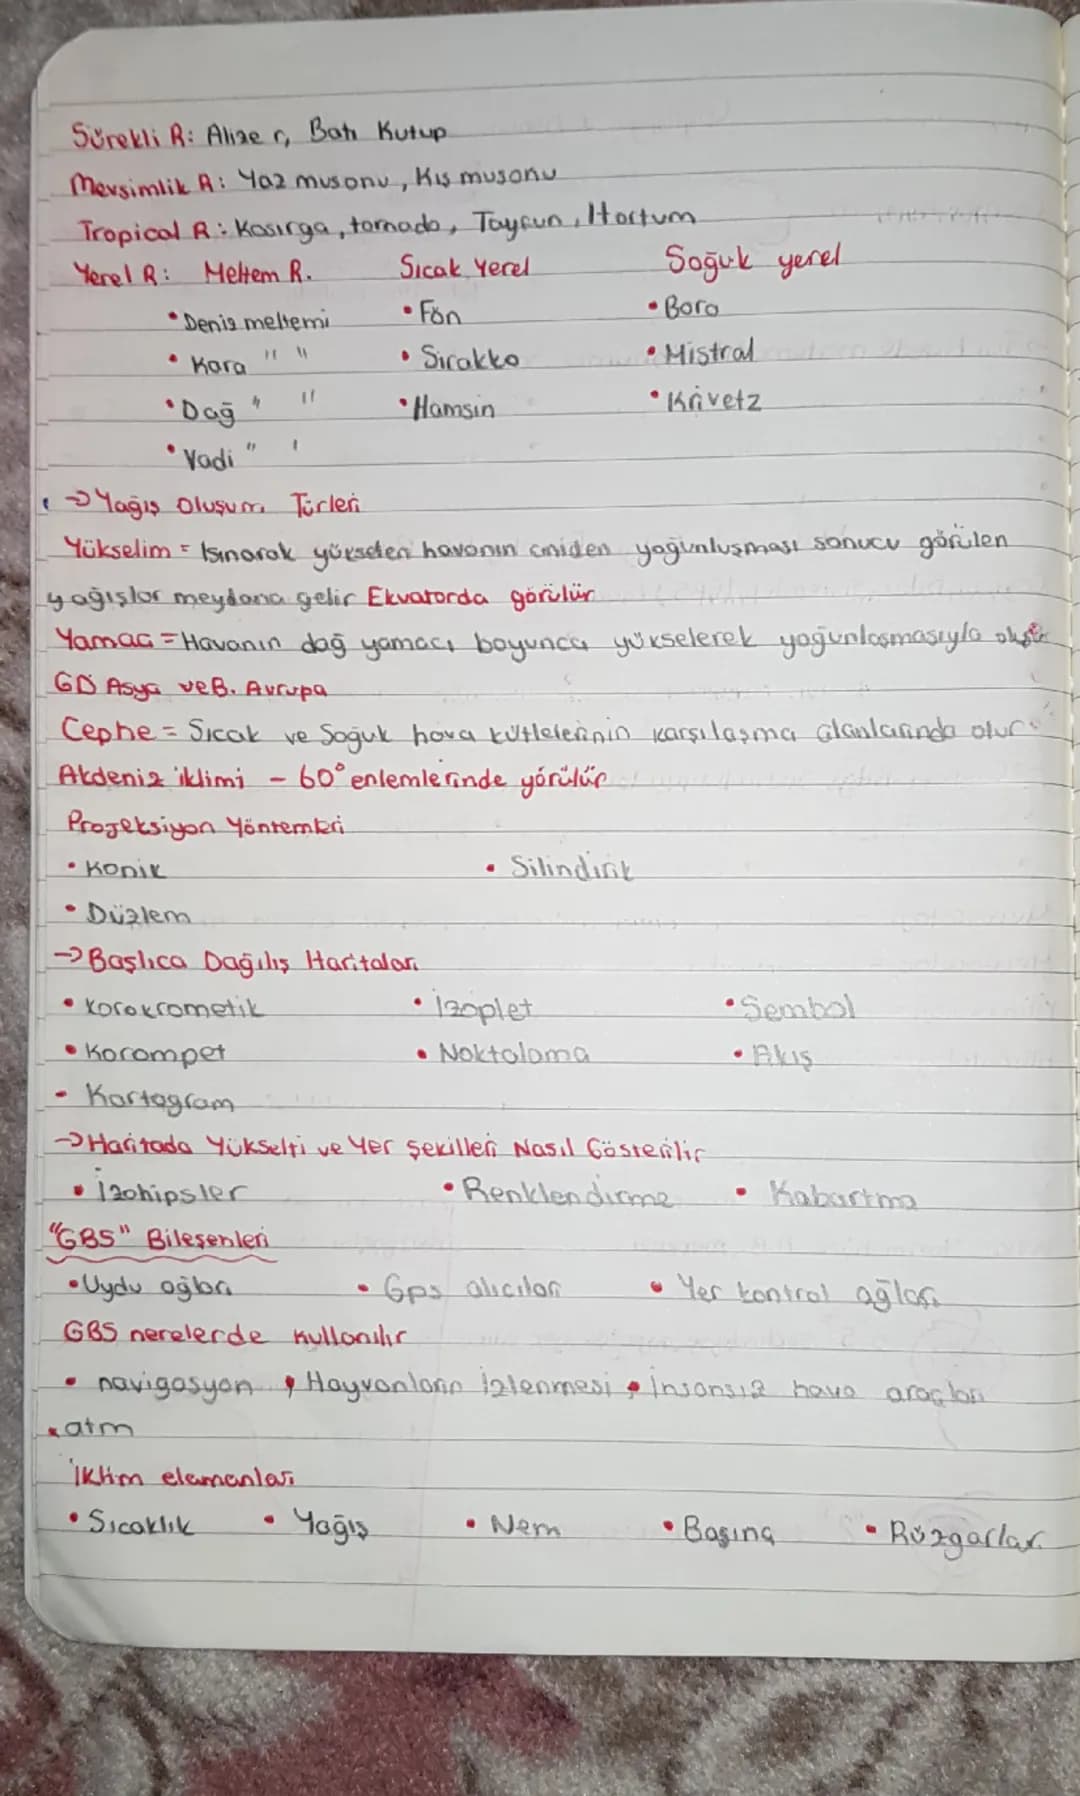 Sürekli R: Alize r, Batı Kutup
Mevsimlik R: Yaz musonu, Kış musonu
Tropical R: Kasırga, tornado, Tayfun, Hortum
Yerel R: Meltem R. Sıcak Yerel Soğuk yerel
• Deniz meltemi • Fön • Bora
• Kara " " • Sirakko • Mistral
• Dağ " " • Hamsin • Krivetz
• Vadi " '
→ Yağış Oluşum Türleri
Yükselim = Isınarak yükselen havanın aniden yoğunluşması sonucu görülen
yağışlar meydana gelir Ekvatorda görülür
Yamaç = Havanın dağ yamacı boyunca yükselerek yoğunlaşmasıyla oluşur
GD Asya ve B. Avrupa
Cephe = Sıcak ve Soğuk hava kütlelerinin karşılaşma alanlarında olur
Akdeniz iklimi - 60° enlemlerinde görülür
Projeksiyon Yöntemleri
• Konik • Silindirik
• Düzlem
→ Başlıca Dağılış Haritaları
• Korokrometik • İzoplet • Sembol
• Korompet • Noktalama • Akış
- Kartogram
→ Haritada Yükselti ve Yer Şekilleri Nasıl Gösterilir
• İzohipsler • Renklendirme • Kabartma
"GBS" Bileşenleri
• Uydu ağları • Gps alıcıları • Yer kontrol ağları
GBS nerelerde kullanılır
• navigasyon • Hayvanların İzlenmesi • İnsansız hava araçları
• atm
İklim elemanları
• Sıcaklık • Yağış • Nem • Basınç • Rüzgarlar